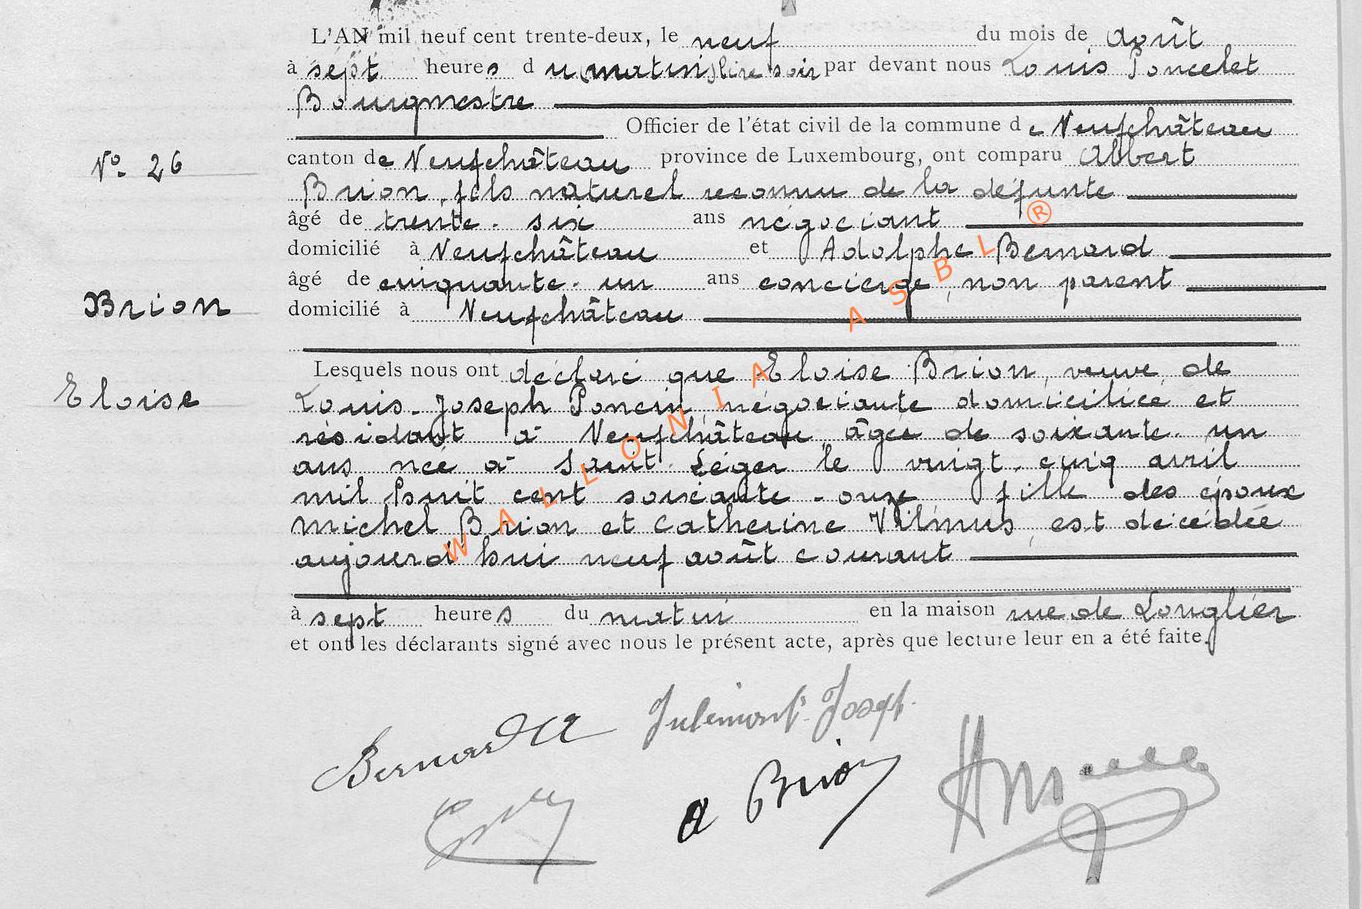 L'AN mil neuf cent trente-deux, le neuf du mois de août
à sept heures du (matin) lire soir par devant nous Louis Poncelet
Bourgmestre
Officier de l'état civil de la commune de Neufchâteau
N° 26
canton de Neufchâteau province de Luxembourg, ont comparu Albert
Brion, fils naturel reconnu de la défunte
âgé de trente-six ans négociant
domicilié à Neufchâteau et Adolphe Bernard
âgé de cinquante-un ans concierge, non parent
Brion
domicilié à Neufchâteau
Lesquels nous ont déclaré que Eloise Brion, veuve de
Eloise
Louis-Joseph Poncin, négociante domiciliée et
résidant à Neufchâteau, âgée de soixante-un
ans née à Saint-Léger le vingt-cinq avril
mil huit cent soixante-onze fille des époux
Michel Brion et Catherine Vilmus, est décédée
aujourd'hui neuf août courant
à sept heures du matin en la maison rue de Longlier
et ont les déclarants signé avec nous le présent acte, après que lecture leur en a été faite.
Bernard A
Joseph
A Brion
WALLONIA ASBL ®